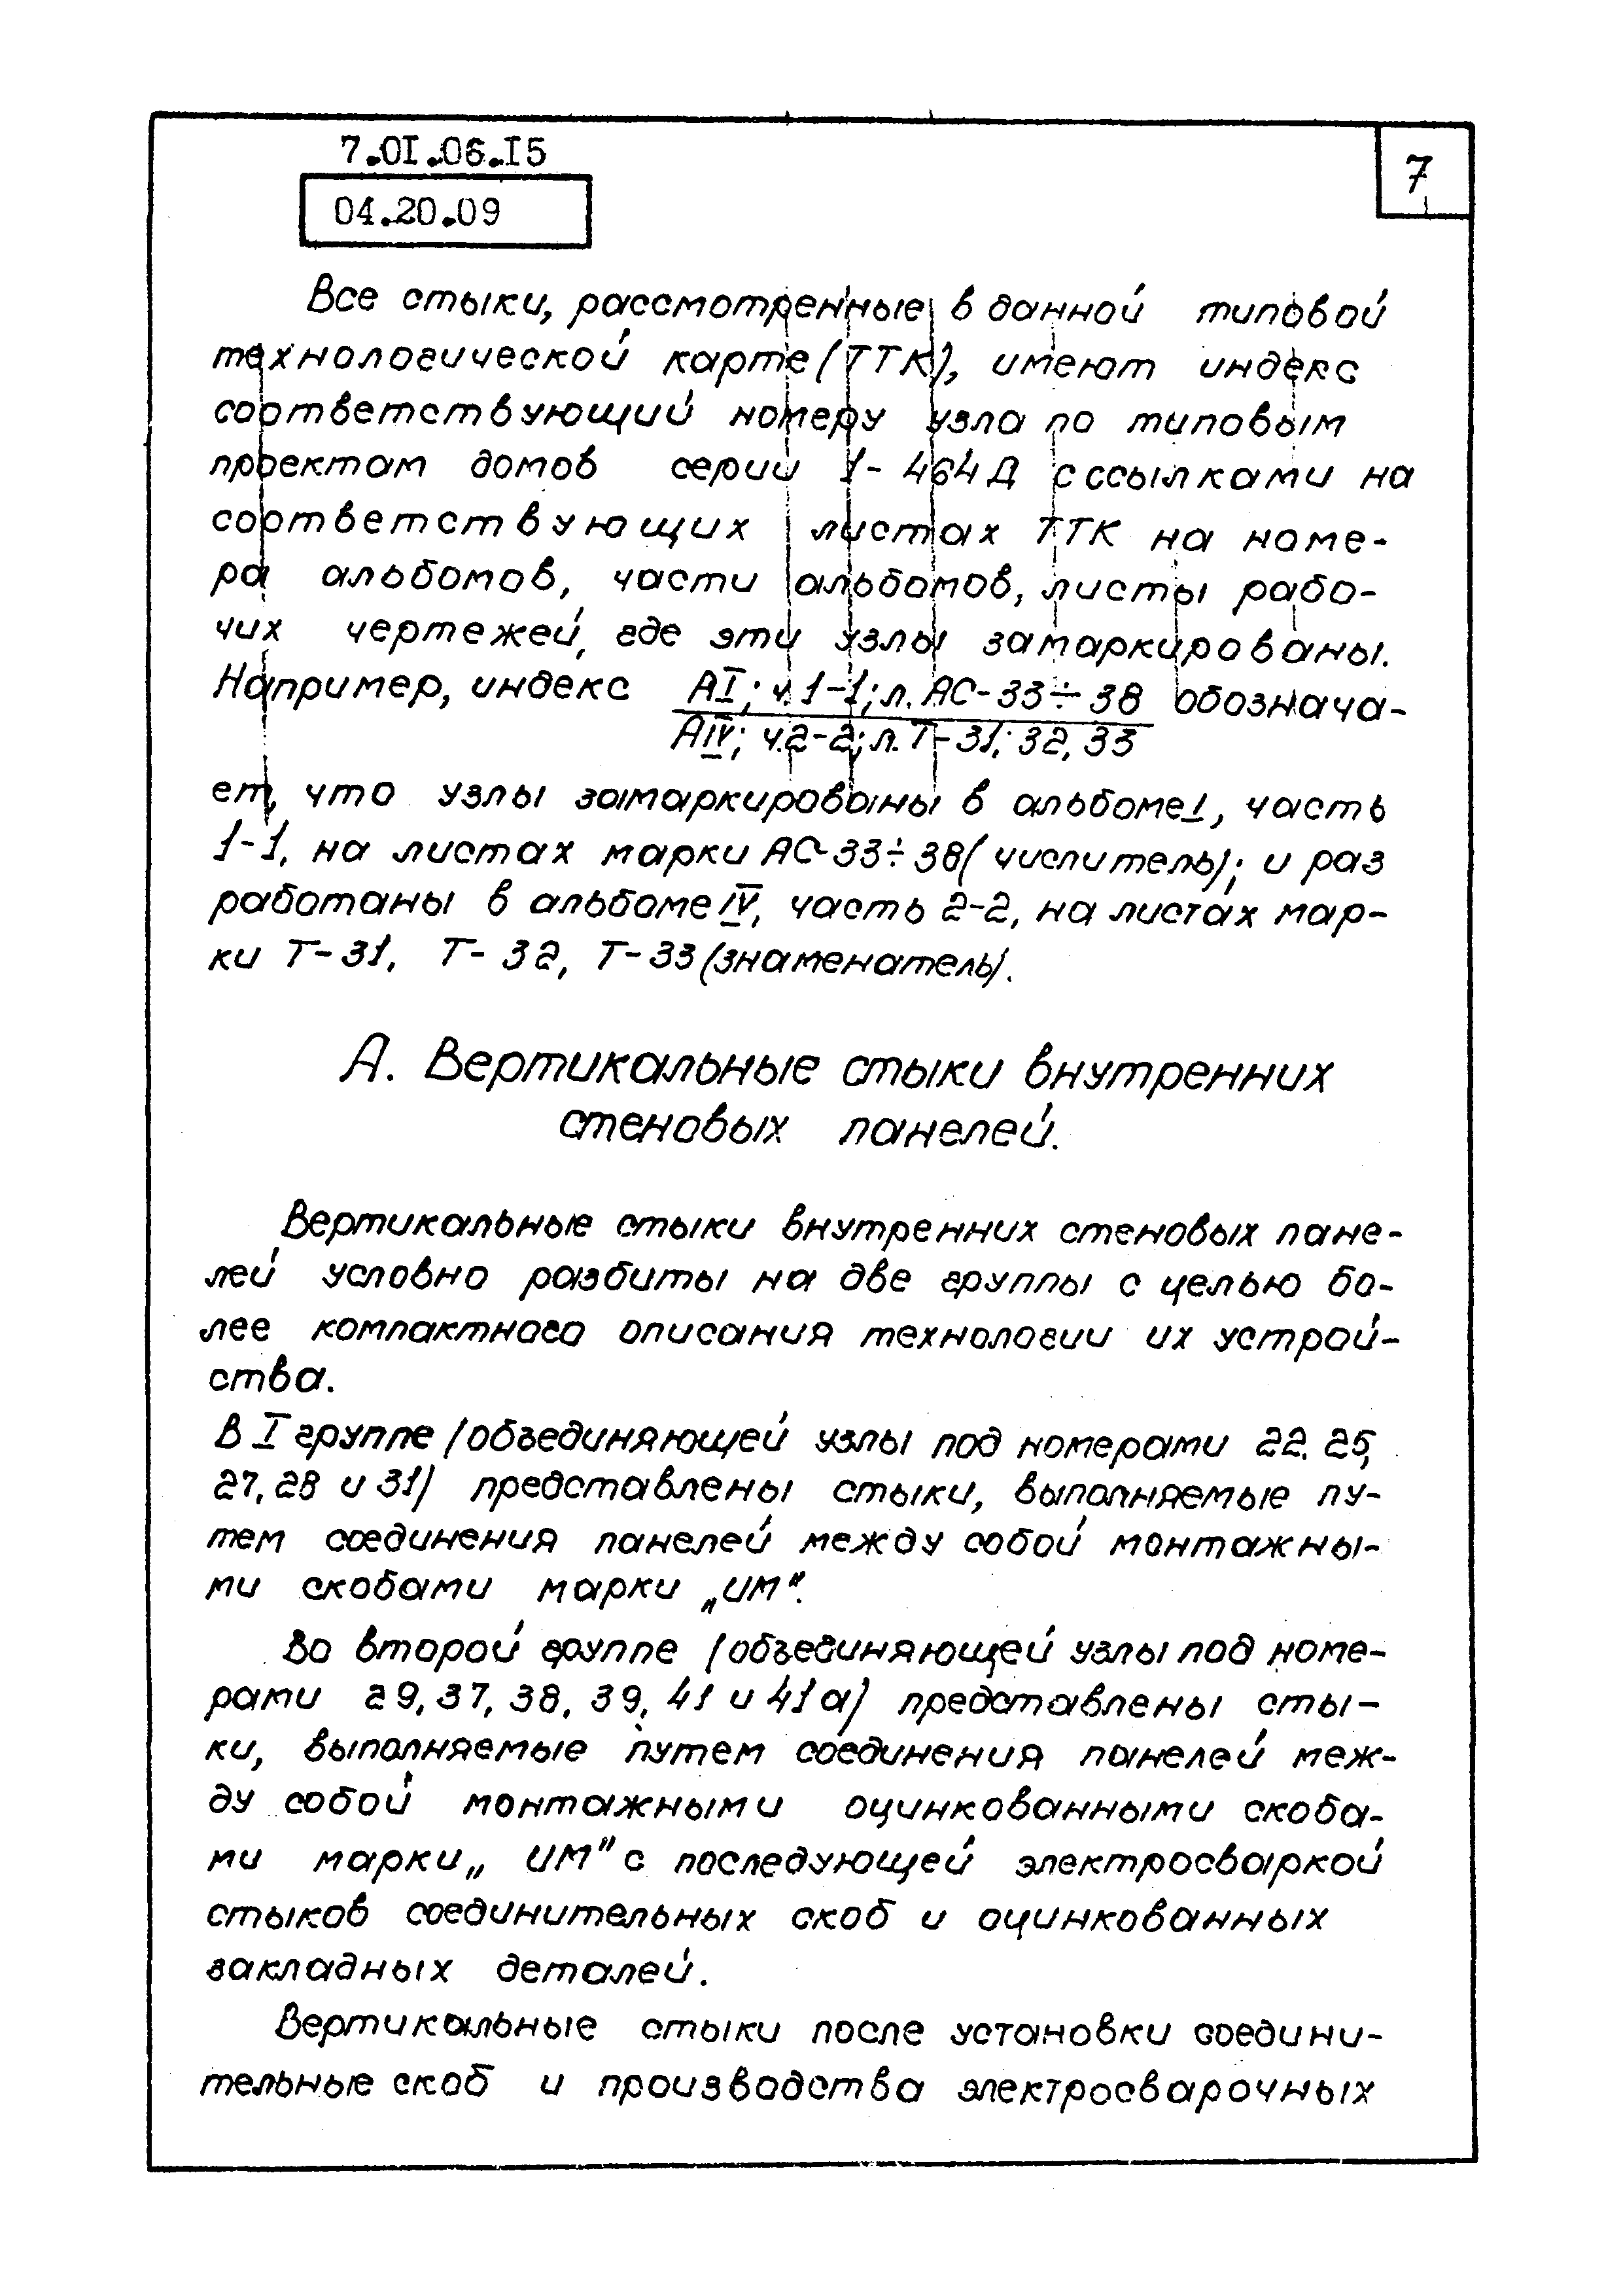 7.01.06.15
7
04.20.09
Все стыки, рассмотренные в данной типовой
технологической карте (ТТК), имеют индекс
соответствующий номеру узла по типовым
проектам домов серии 1-464Д с ссылками на
соответствующих листах ТТК на номе-
ра альбомов, части альбомов, листы рабо-
чих чертежей, где эти узлы замаркированы.
Например, индекс AI; ч.1-1; л. АС-33÷38 обознача-
AIV; ч.2-2; л. Т-31; 32, 33
ет, что узлы замаркированы в альбоме I, часть
1-1, на листах марки АС-33÷38 (числитель); и раз
работаны в альбоме IV, часть 2-2, на листах мар-
ки Т-31, Т-32, Т-33 (знаменатель).
А. Вертикальные стыки внутренних
стеновых панелей.
Вертикальные стыки внутренних стеновых пане-
лей условно разбиты на две группы с целью бо-
лее компактного описания технологии их устрой-
ства.
В I группе (объединяющей узлы под номерами 22. 25,
27, 28 и 31) представлены стыки, выполняемые пу-
тем соединения панелей между собой монтажны-
ми скобами марки „ИМ".
Во второй группе (объединяющей узлы под номе-
рами 29, 37, 38, 39, 41 и 41а) представлены сты-
ки, выполняемые путем соединения панелей меж-
ду собой монтажными оцинкованными скоба-
ми марки „ИМ" с последующей электросваркой
стыков соединительных скоб и оцинкованных
закладных деталей.
Вертикальные стыки после установки соедини-
тельные скоб и производства электросварочных